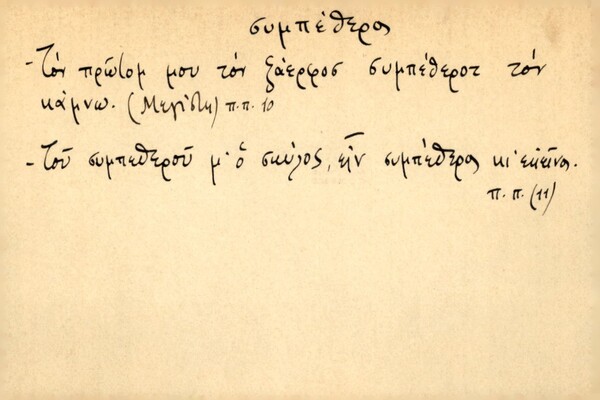 συμπέθερος
- Τόν πρῶτομ μου τόν ξάερφοσ συμπέθεροτ τόν
κάμνω. (Μεγίστη) π.π. 10
- Τοῦ συμπεθεροῦ μ' ὁ σκύλος, εἶν συμπέθερος κι' ἐκεῖνος.
π. π. (11)